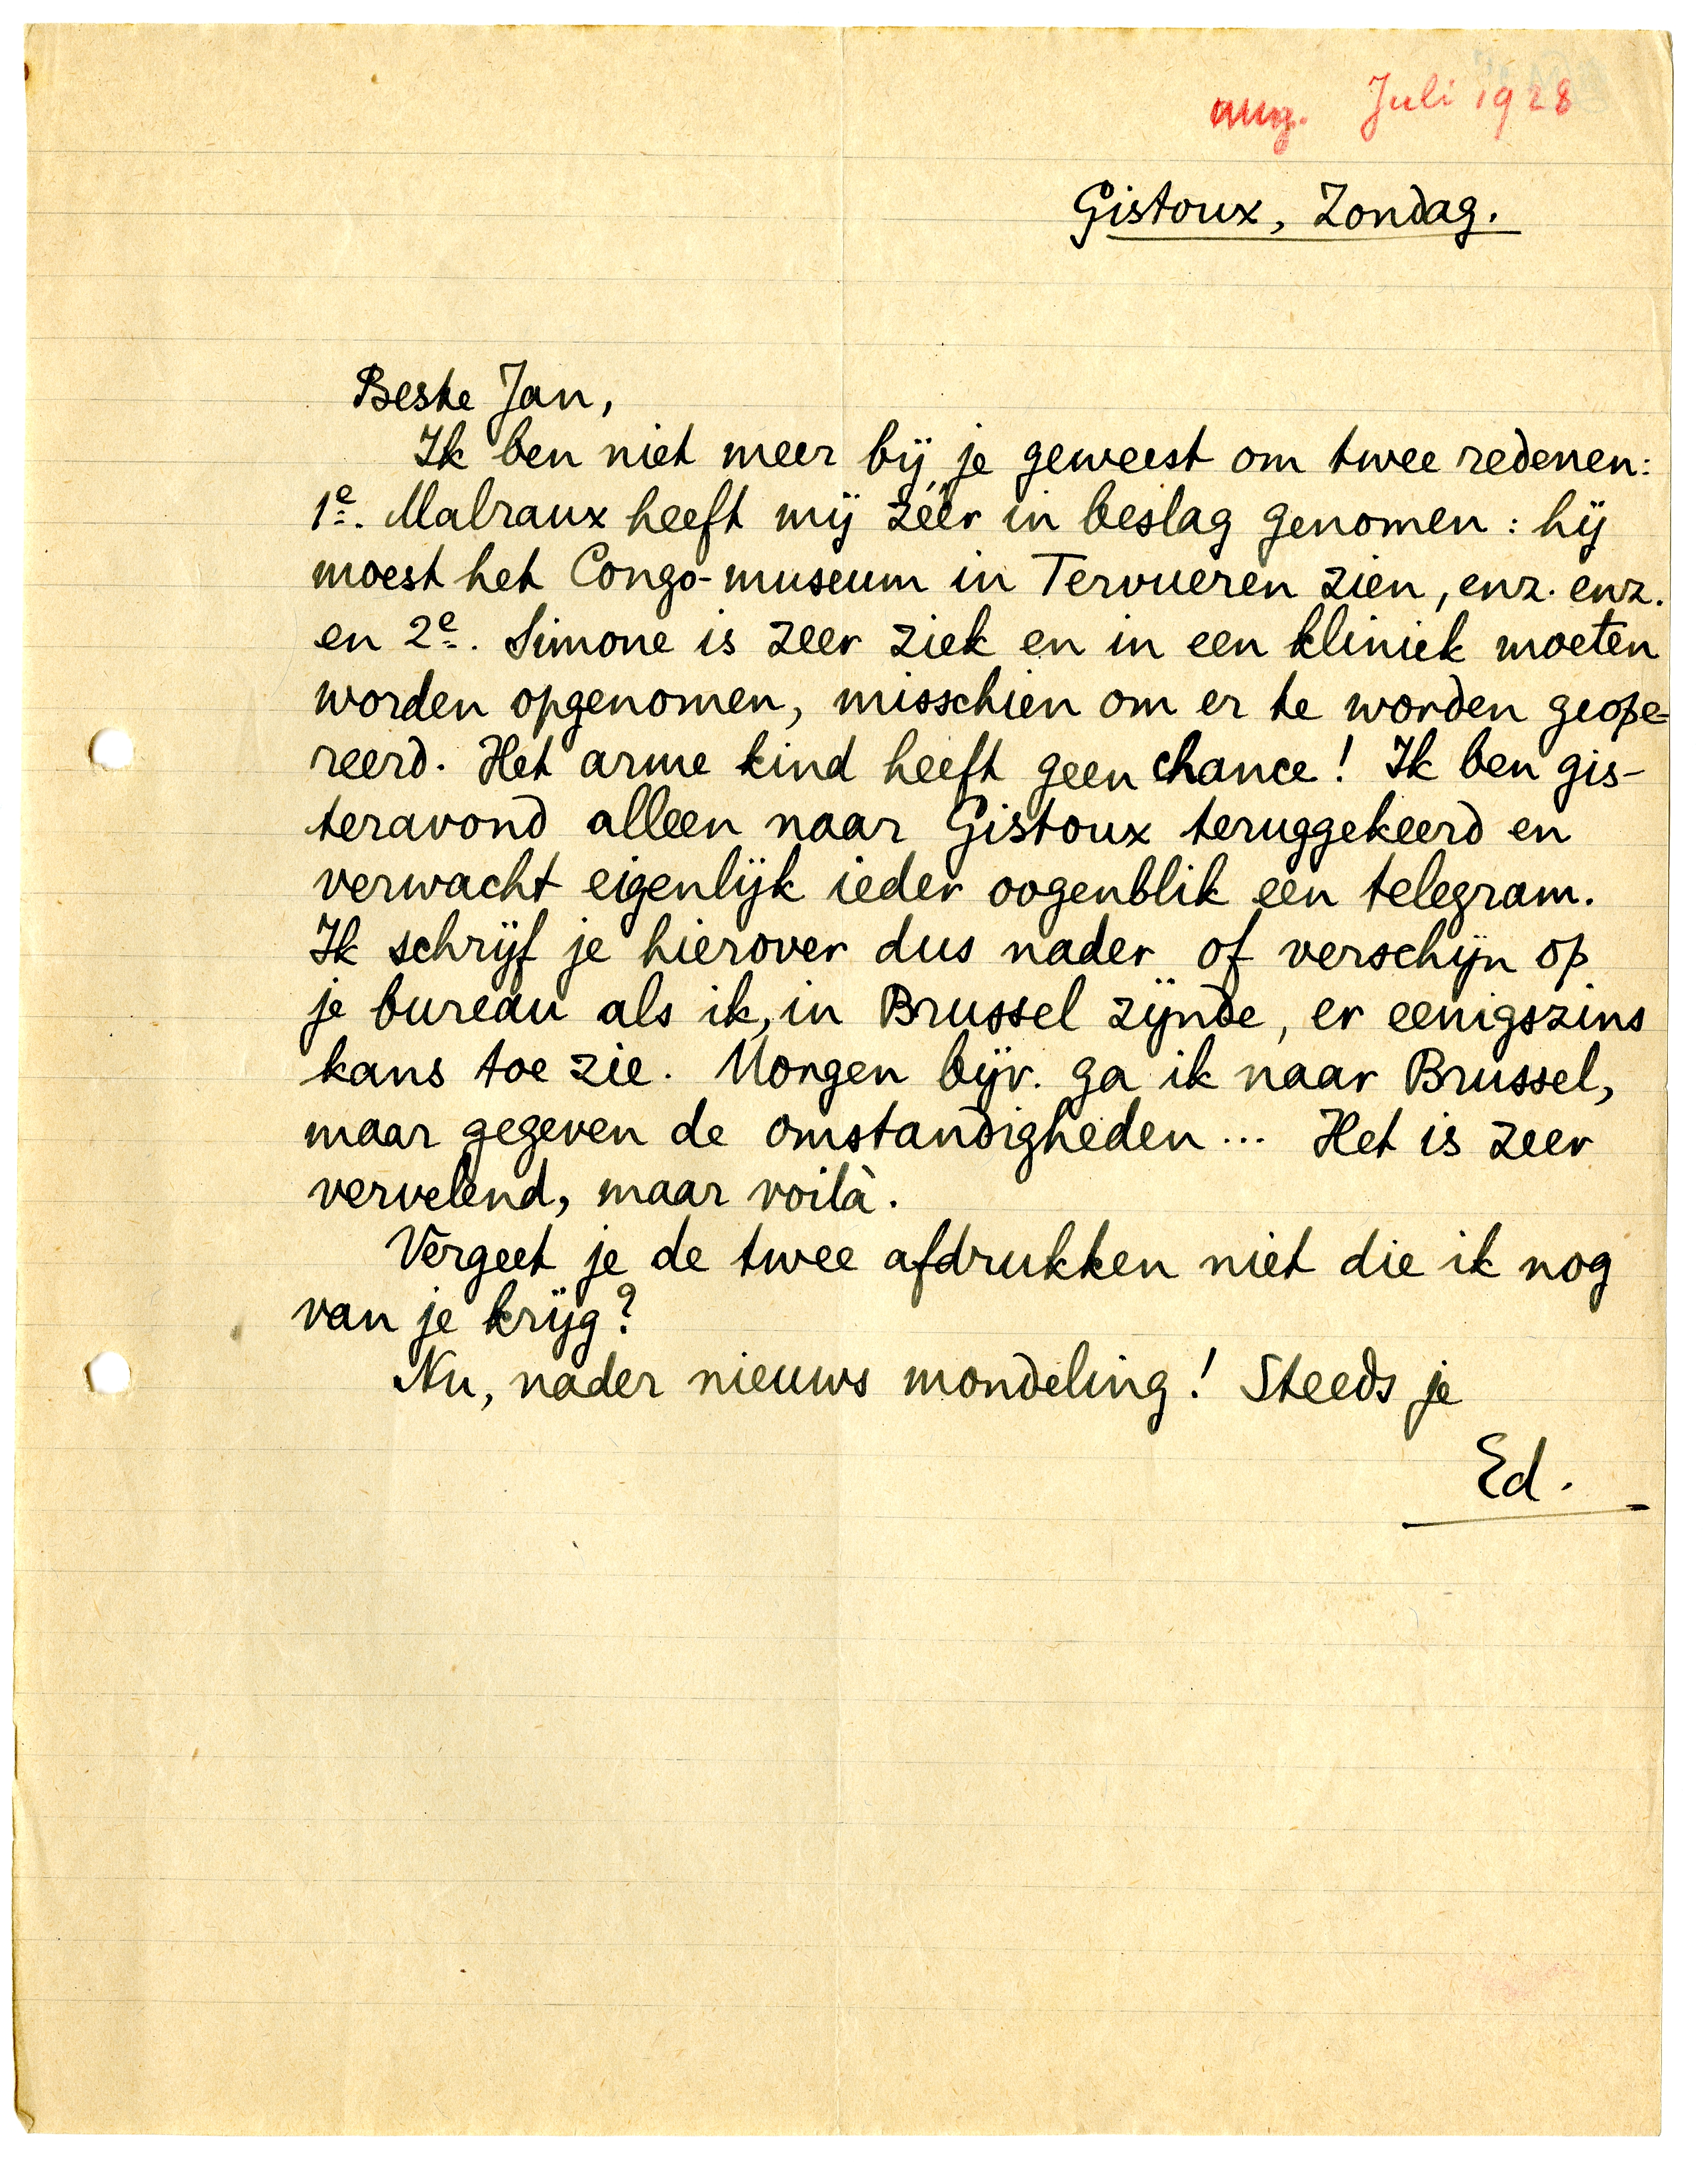 aug. Juli 1928
Gistoux, Zondag.
Beste Jan,
Ik ben niet meer bij je geweest om twee redenen:
1e. Malraux heeft mij zéér in beslag genomen : hij
moest het Congo-museum in Tervueren zien, enz. enz.
en 2e. Simone is zeer ziek en in een kliniek moeten
worden opgenomen, misschien om er te worden geope-
reerd. Het arme kind heeft geen chance! Ik ben gis-
teravond alleen naar Gistoux teruggekeerd en
verwacht eigenlijk ieder oogenblik een telegram.
Ik schrijf je hierover dus nader of verschijn op
je bureau als ik, in Brussel zijnde, er eenigszins
kans toe zie. Morgen bijv. ga ik naar Brussel,
maar gegeven de omstandigheden... Het is zeer
vervelend, maar voilà.
Vergeet je de twee afdrukken niet die ik nog
van je krijg?
Nu, nader nieuws mondeling! Steeds je
Ed.